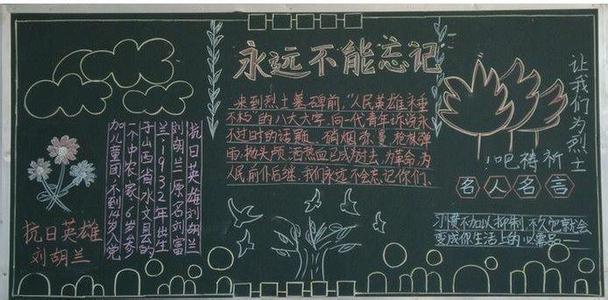 永远不能忘记
来到烈士墓碑前,"人民英雄永垂
不朽"的八大大字,向一代青年诉说永
不过时的话题。硝烟弥曼,枪林弹
雨,抛头颅,洒热血已成过去,为革命,为
人民,前仆后继,我们永远不会忘记你们。
抗日英雄刘胡兰
刘胡兰,原名刘富
兰,1932年出生
于山西省水文县的
一个中农家,8岁参
加童团,不到14岁入党
抗日英雄
刘胡兰
让我们为烈士
祈祷吧!
名人名言
习惯不加以抑制 不久它就会
变成你生活上的必需品——